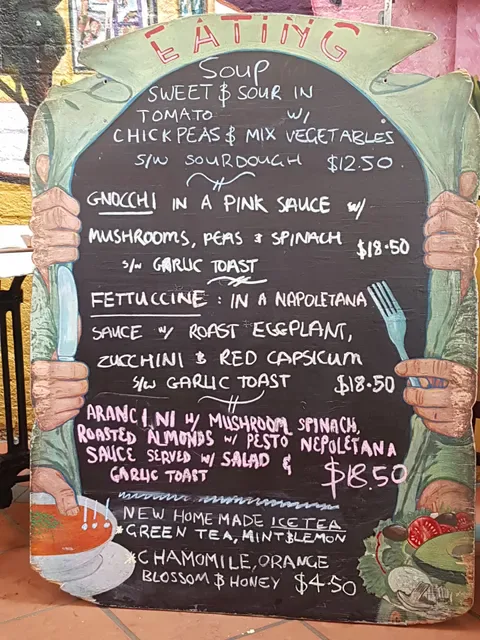 EATING
SOUP
SWEET & SOUR IN
TOMATO W/
CHICKPEAS & MIX VEGETABLES
S/W SOURDOUGH $12.50.
GNOCCHI IN A PINK SAUCE W/
MUSHROOMS, PEAS & SPINACH $18.50
S/W GARLIC TOAST
FETTUCCINE : IN A NAPOLETANA
SAUCE W/ ROAST EGGPLANT,
ZUCCHINI & RED CAPSICUM
S/W GARLIC TOAST $18.50
ARANCINI W/ MUSHROOM SPINACH,
ROASTED ALMONDS W/ PESTO NEPOLETANA
SAUCE SERVED W/ SALAD &
GARLIC TOAST $18.50
NEW HOMEMADE ICE TEA
*GREEN TEA, MINT & LEMON
*CHAMOMILE, ORANGE
BLOSSOM & HONEY $4.50